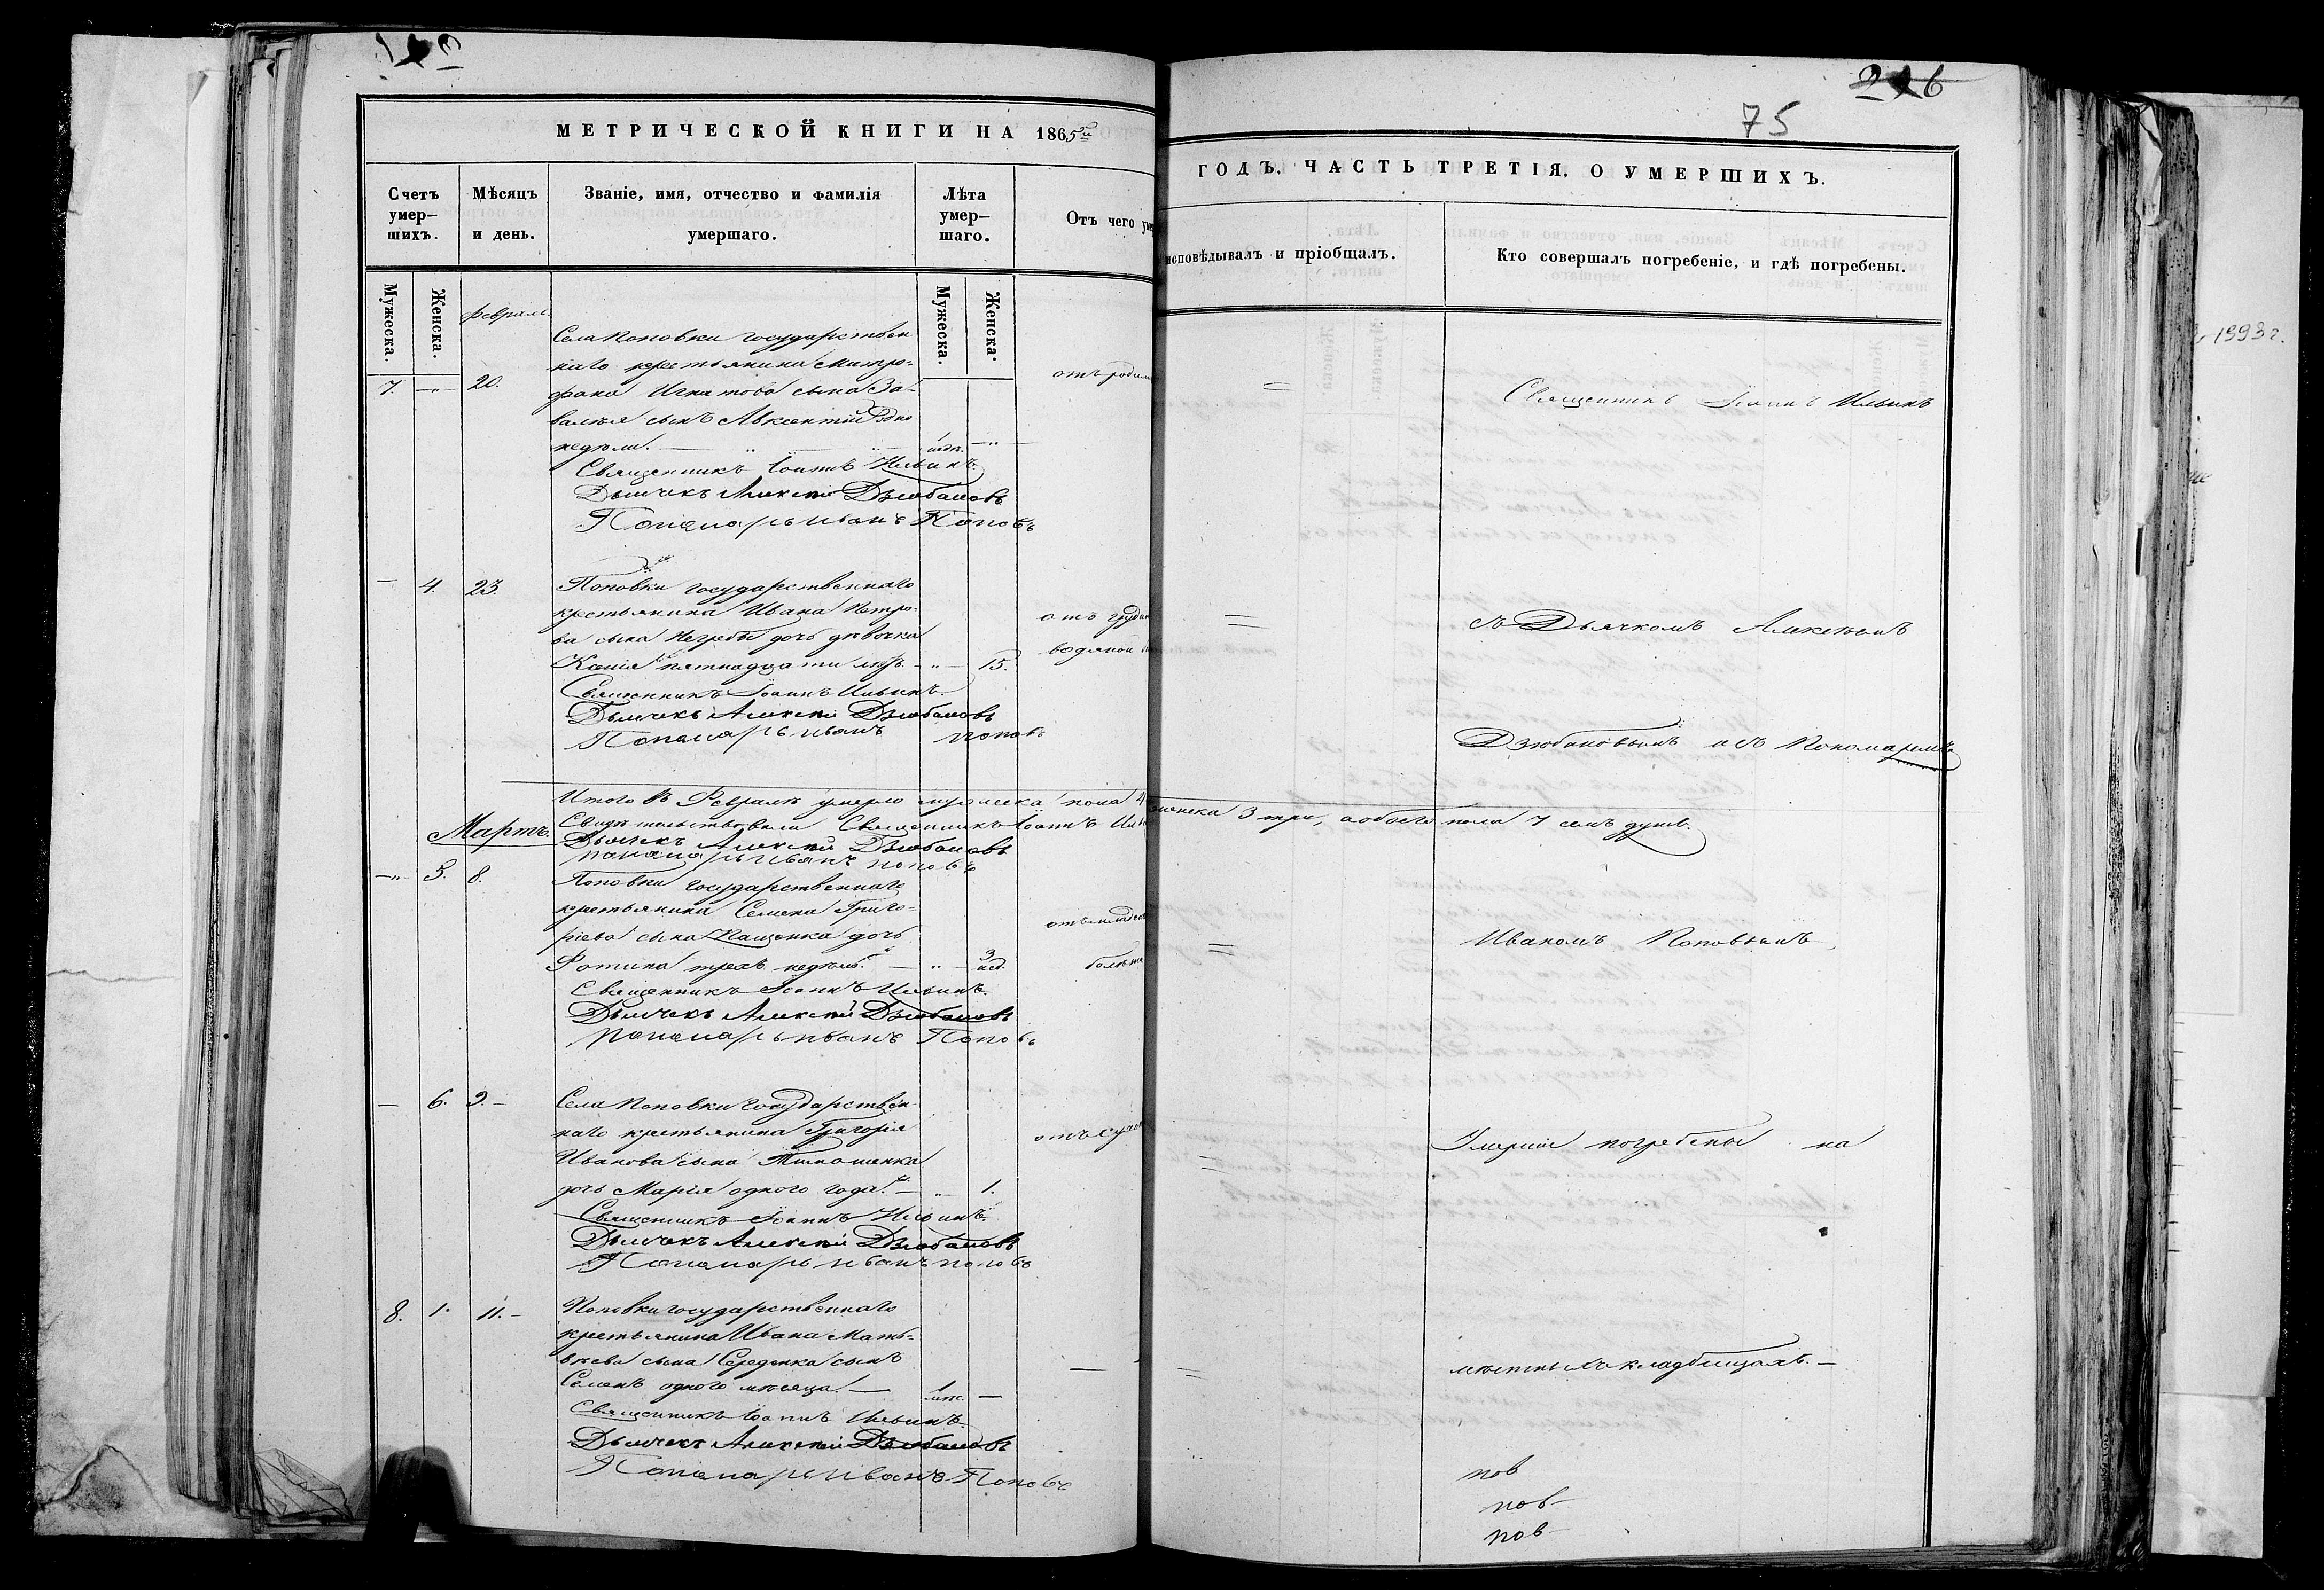 226
75
МЕТРИЧЕСКОЙ КНИГИ НА 1865й
ГОДЪ, ЧАСТЬ ТРЕТІЯ, О УМЕРШИХЪ.
Счетъ умер-
шихъ.
Мѣсяцъ
и день.
Званіе, имя, отчество и фамилія
умершаго.
Лѣта
умер-
шаго.
Отъ чего
исповѣдывалъ и пріобщалъ.
Кто совершалъ погребеніе, и гдѣ погребены.
Мужеска.
Женска.
Мужеска.
Женска.
Февраль.
Села Поповки государствен
наго крестьянина Митро-
7. —"— 20. фана Игнатова сына За-
отъ
валѣя сынъ Авксентій
недѣли. —
Священникъ Іоаннъ Ильинъ
Дьячекъ Алексѣй Дзюбановъ
Пономарь Иванъ Поповъ
Священникъ Іоаннъ Ильинъ
— 4. 23. Поповки государственнаго
крестьянина Ивана Петро-
отъ
ва сына Негребы дочь дѣвочка
водяной
Ксенія пятнадцати лѣтъ —"— 15.
Священникъ Іоаннъ Ильинъ.
Дьячекъ Алексѣй Дзюбановъ
Пономарь Иванъ Поповъ
съ Дьячкомъ Алексѣемъ
Дзюбановымъ и съ Пономаремъ
Итого въ Февралѣ умерло мужеска пола 4 женска 3 три, а обоего пола 7 семь душъ.
Свидѣтельствовали Священникъ Іоаннъ
Мартъ.
Дьячекъ Алексѣй Дзюбановъ
Пономарь Иванъ Поповъ
—"— 5. 8. Поповки государственнаго
крестьянина Семена Григо-
ріева сына Пащенка дочь
Фотина трехъ недѣль. —"— 3 нед.
Священникъ Іоаннъ Ильинъ.
Дьячекъ Алексѣй Дзюбановъ
Пономарь Иванъ Поповъ
Иваномъ Поповымъ
— 6. 9. — Села Поповки государствен-
наго крестьянина Григорія
Иванова сына Тимошенка
дочь Марія одного года. —"— 1.
Священникъ Іоаннъ Ильинъ.
Дьячекъ Алексѣй Дзюбановъ
Пономарь Иванъ Поповъ
Умершіе погребены на
8. 1. 11. — Поповки государственнаго
крестьянина Ивана Матѳ-
ѣева сына Середенка сынъ
Семенъ одного мѣсяца. — 1 мѣс. —
Священникъ Іоаннъ Ильинъ
Дьячекъ Алексѣй Дзюбановъ
Пономарь Иванъ Поповъ
мѣстныхъ кладбищахъ. —
пов
пов-
пов-
1393г.